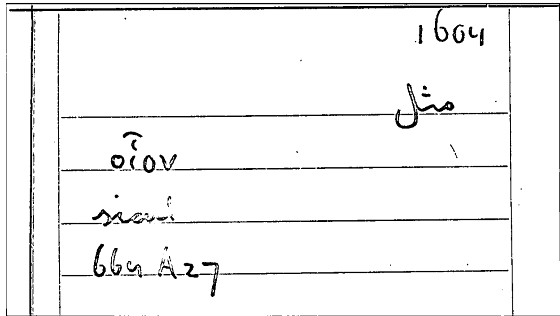 1604
مثل
οἷον
sicut
664 A 27